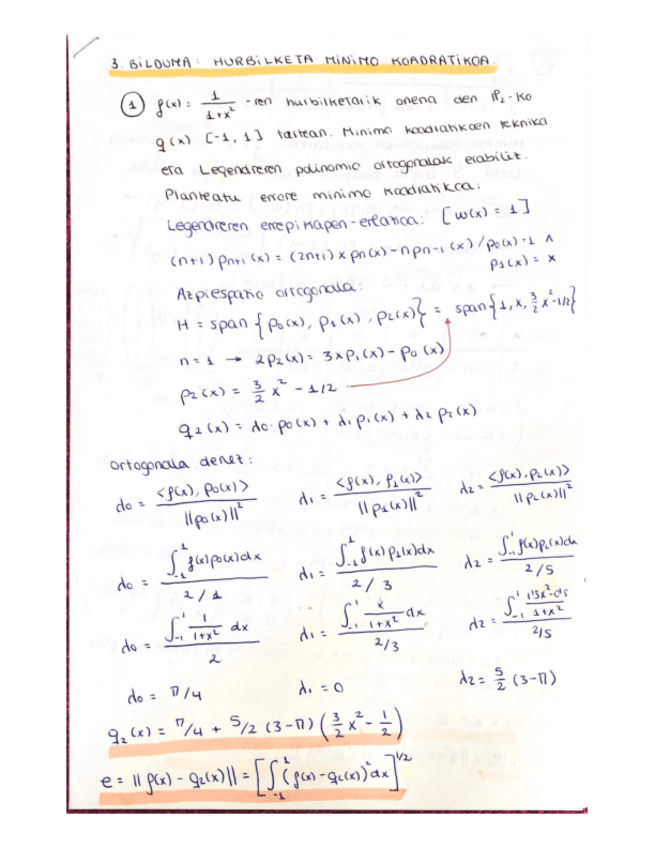 3. BILDUMA: HURBILKETA MINIMO KOADRATIKOA.
① f(x) = 1/(1+x²) -ren hurbilketarik onena den P₂-ko
g(x) [-1, 1] tartean. Minimo koadratikoen teknika
eta Legendreren polinomio ortogonalak erabiliz.
Planteatu errore minimo koadratikoa:
Legendreren errepikapen-erlazioa: [w(x) = 1]
(n+1) pₙ₊₁(x) = (2n+1) x pₙ(x) - n pₙ₋₁(x) / p₀(x) = 1 ∧
p₁(x) = x
Azpiespazio ortogonala:
H = span { p₀(x), p₁(x), p₂(x) } = span { 1, x, 3/2 x² - 1/2 }
n = 1 → 2p₂(x) = 3xp₁(x) - p₀(x)
p₂(x) = 3/2 x² - 1/2
g₂(x) = λ₀·p₀(x) + λ₁p₁(x) + λ₂p₂(x)
ortogonala denez:
λ₀ = <f(x), p₀(x)> / ||p₀(x)||² λ₁ = <f(x), p₁(x)> / ||p₁(x)||² λ₂ = <f(x), p₂(x)> / ||p₂(x)||²
λ₀ = ∫₋₁¹ f(x)p₀(x)dx / 2/1 λ₁ = ∫₋₁¹ f(x)p₁(x)dx / 2/3 λ₂ = ∫₋₁¹ f(x)p₂(x)dx / 2/5
λ₀ = ∫₋₁¹ 1/(1+x²) dx / 2 λ₁ = ∫₋₁¹ x/(1+x²) dx / 2/3 λ₂ = ∫₋₁¹ (1'5x²-0'5)/(1+x²) / 2/5
λ₀ = π/4 λ₁ = 0 λ₂ = 5/2 (3-π)
g₂(x) = π/4 + 5/2 (3-π) (3/2 x² - 1/2)
e = ||f(x) - g₂(x)|| = [∫₋₁¹ (f(x)-g₂(x))² dx]^1/2